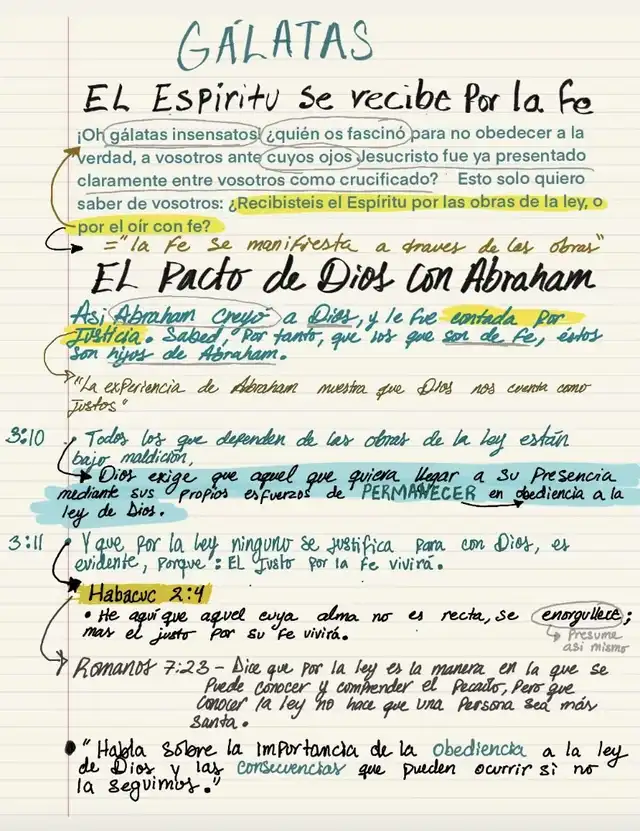 GÁLATAS
EL Espiritu se recibe Por la fe
¡Oh gálatas insensatos! ¿quién os fascinó para no obedecer a la
verdad, a vosotros ante cuyos ojos Jesucristo fue ya presentado
claramente entre vosotros como crucificado? Esto solo quiero
saber de vosotros: ¿Recibisteis el Espíritu por las obras de la ley, o
por el oír con fe?
="la Fe se manifiesta a traves de las obras"
EL Pacto de Dios con Abraham
Asi Abraham creyó a Dios, y le fue contada por
Justicia. Sabed, Por tanto, que los que son de fe, éstos
son hijos de Abraham.
"La experiencia de Abraham muestra que Dios nos cuenta como
Justos"
3:10 Todos los que dependen de las obras de la Ley están
bajo maldición,
Dios exige que aquel que quiera llegar a su Presencia
mediante sus propios esfuerzos de PERMANECER en obediencia a la
ley de Dios.
3:11 Y que por la ley ninguno se justifica para con Dios, es
evidente, porque: EL Justo por la Fe vivirá.
Habacuc 2:4
• He aquí que aquel cuya alma no es recta, se enorgullece;
mas el justo por su fe vivirá.
Presume
asi mismo
Romanos 7:23 - Dice que por la ley es la manera en la que se
Puede conocer y comprender el Pecado, Pero que
Conocer la ley no hace que una Persona sea más
santa.
• "Habla Sobre la Importancia de la obediencia a la ley
de Dios y las consecuencias que pueden ocurrir si no
la seguimos."